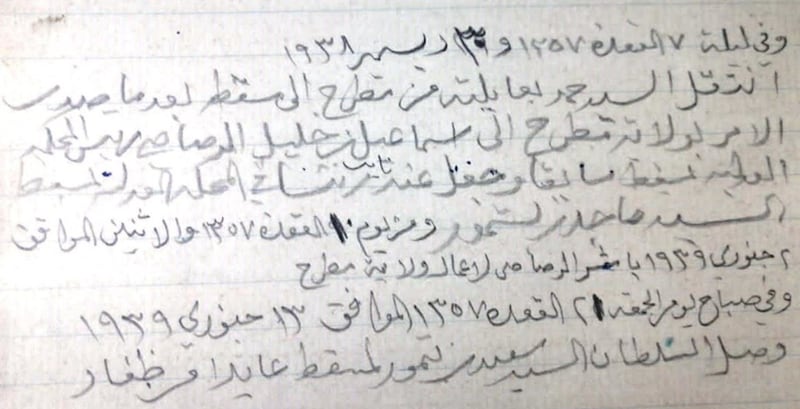 وفي ليلة ٧ القعدة ١٣٥٧ و ٣٠ ديسمبر ١٩٣٨
انتقل السيد حمد بعايلته من مطرح الى مسقط بعد ما صدر
الامر بولاية مطرح الى اسماعيل بن خليل الرصاصي رييس المحكمة
العدلية بمسقط سابقا وجعل عنه نائب في المحكمة العدلية بمسقط
السيد ماجد بن تيمور ومن يوم ١٠ القعدة ١٣٥٧ والاثنين الموافق
٢ جنوري ١٩٣٩ باشر الرصاصي لاعمال ولاية مطرح
وفي صباح يوم الجمعه ٢١ القعدة ١٣٥٧ الموافق ١٣ جنوري ١٩٣٩
وصل السلطان السيد سعيد بن تيمور لمسقط عايدا من ظفار